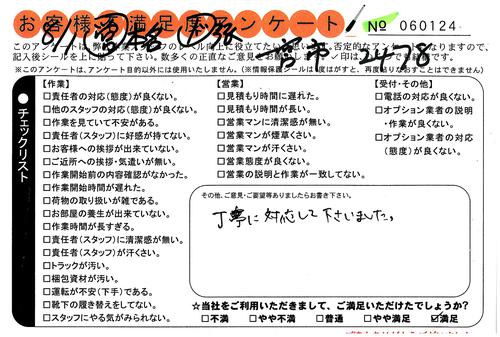 お客様不満足度アンケート！
No 060124
このアンケートは、弊
記入後シールを上に貼って下さい。
※このアンケートは、アンケート目的以外には使用いたしません。（※情報保護シールは1度はがすと、再度貼りなおすことはできません）
一宮市 2478
チェックリスト
【作業】
□責任者の対応（態度）が良くない。
□他のスタッフの対応（態度）が良くない。
□作業を見ていて不安がある。
□責任者（スタッフ）に好感が持てない。
□お客様への挨拶が出来ていない。
□ご近所への挨拶・気遣いが無い。
□作業開始前の内容確認がなかった。
□作業開始時間が遅れた。
□荷物の取り扱いが雑である。
□お部屋の養生が出来ていない。
□作業時間が長すぎる。
□責任者（スタッフ）に清潔感が無い。
□責任者（スタッフ）が汗くさい。
□トラックが汚い。
□梱包資材が汚い。
□運転が不安（下手）である。
□靴下の履き替えをしてない。
□スタッフにやる気がみられない。
【営業】
□見積もり時間に遅れた。
□見積もり時間が長い。
□営業マンに清潔感が無い。
□営業マンが煙草くさい。
□営業マンが汗くさい。
□営業態度が良くない。
□営業の説明と作業が一致してない。
【受付・その他】
□電話の対応が良くない。
□オプション業者の説明
・作業が良くない。
□オプション業者の対応
（態度）が良くない。
その他、ご意見・ご要望等ありましたらお書き下さい。
丁寧に対応して下さいました。
☆当社をご利用いただきまして、ご満足いただけたでしょうか？
□不満 □やや不満 □普通 □やや満足 ☑満足